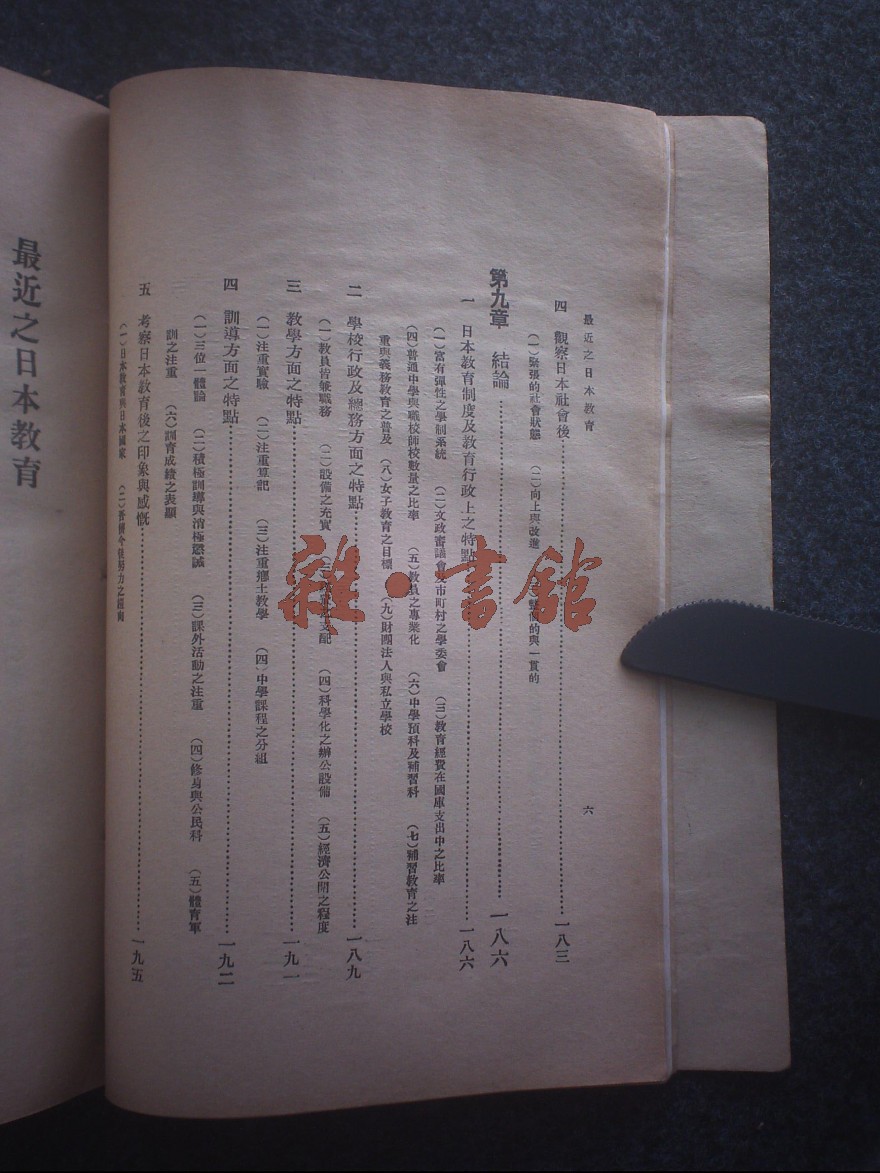 最近之日本教育
六
四　觀察日本社會後……一八三
（一）緊張的社會狀態　（二）向上與改進　整個的與一貫的
第九章　結論……一八六
一　日本教育制度及教育行政上之特點……一八六
（一）富有彈性之學制系統　（二）文政審議會及市町村之學委會　（三）教育經費在國庫支出中之比率
（四）普通中學與職校師校數量之比率　（五）教員之專業化　（六）中學預科及補習科　（七）補習教育之注
重與義務教育之普及　（八）女子教育之目標　（九）財團法人與私立學校
二　學校行政及總務方面之特點……一八九
（一）教員皆兼職務　（二）設備之充實　支配　（四）科學化之辦公設備　（五）經濟公開之程度
三　教學方面之特點……一九一
（一）注重實驗　（二）注重筆記　（三）注重鄉土教學　（四）中學課程之分組
四　訓導方面之特點……一九二
（一）三位一體論　（二）積極訓導與消極懲誡　（三）課外活動之注重　（四）修身與公民科　（五）體育軍
訓之注重　（六）訓育成績之表顯
五　考察日本教育後之印象與感慨……一九五
（一）日本教育與日本國家　（二）吾儕今後努力之趨向
最近之日本教育
雜·書館